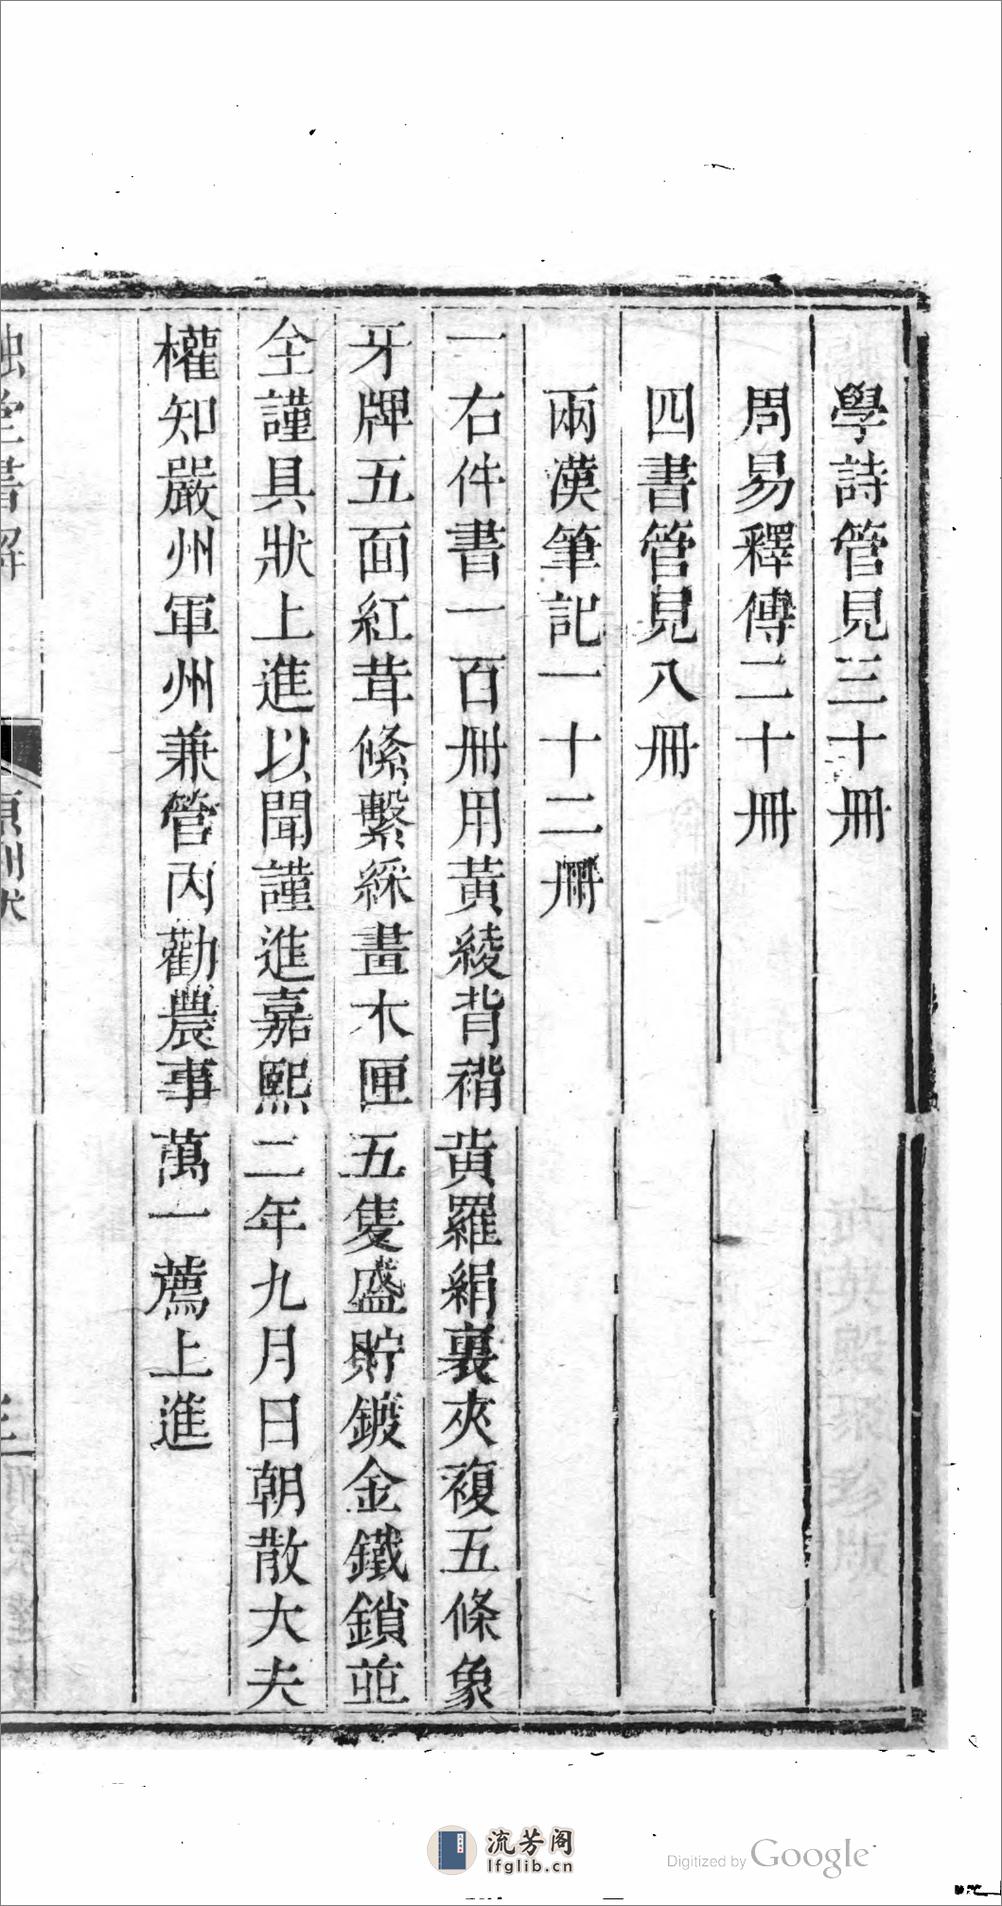 學詩管見三十冊
周易釋傳二十冊
四書管見八冊
兩漢筆記一十二冊
一右件書一百冊用黃綾背褙黃羅絹裏夾複五條象
牙牌五面紅茸絛繫綵畫木匣五隻盛貯鍍金鐵鎖並
全謹具狀上進以聞謹進嘉熙二年九月日朝散大夫
權知嚴州軍州兼管內勸農事萬一薦上進
融堂書解
原刊狀
三
流芳阁
lfglib.cn
Digitized by Google